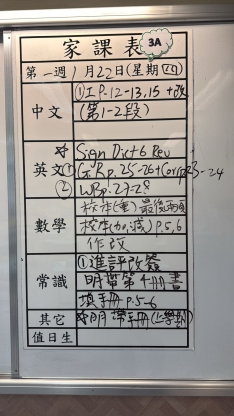 家課表 3A
第一週 1月22日(星期四)
中文 ①工P.12-13,15 +改
(第1-2段)
☆ Sign Dict 6 Rev
英文 ① GRp.25-26 + Corr p23-24
② WBp.27-28
校本(乘) 最後兩頁
數學 校本(加,減) P.5,6
作改
①進評改簽
常識 明帶第4冊書
填手冊 P.5-6
其它 明帶手冊(上學期)
值日生